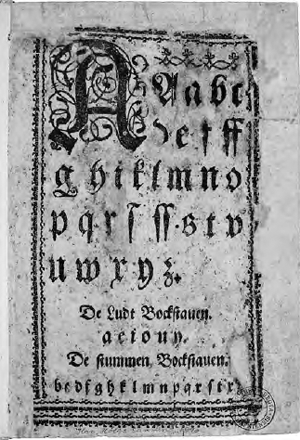 A A a b c
d e f ff
g h i k l m n o
p q r ſ ſſ s t v
u w x y z.
De Ludt Bockſtauen.
a e i o u y.
De ſtummen Bockſtauen.
b c d f g h k l m n p q r ſ t x